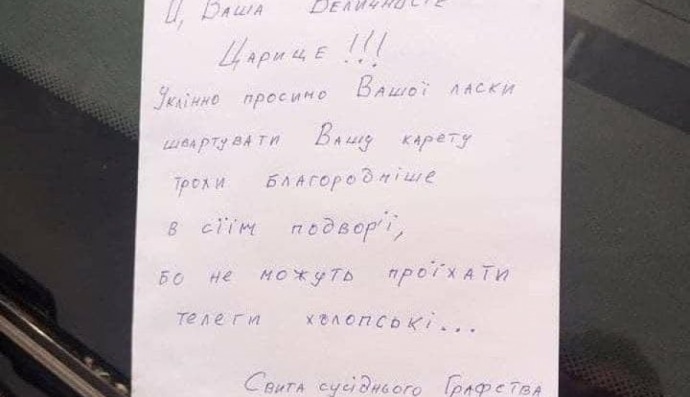 О, Ваша Величносте
Царице !!!
Уклінно просимо Вашої ласки
швартувати Вашу карету
трохи благородніше
в сіїм подвор'ї,
бо не можуть проїхати
телеги холопські...
Свита сусіднього Графства